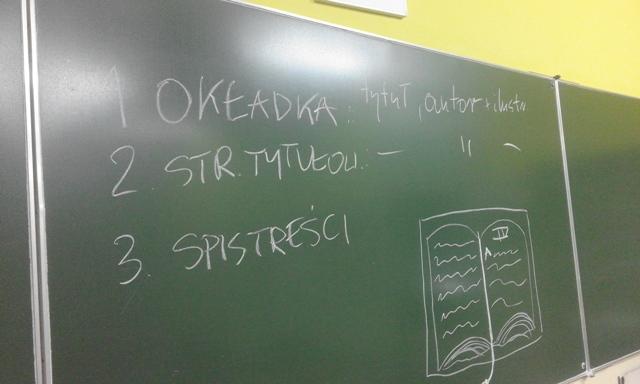 1 OKŁADKA: tytuł, autor + ilustr
2. STR. TYTUŁOW: — " —
3. SPIS TREŚCI
IV